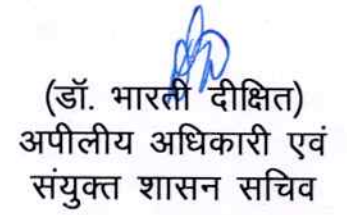 (डॉ. भारती दीक्षित)
अपीलीय अधिकारी एवं
संयुक्त शासन सचिव